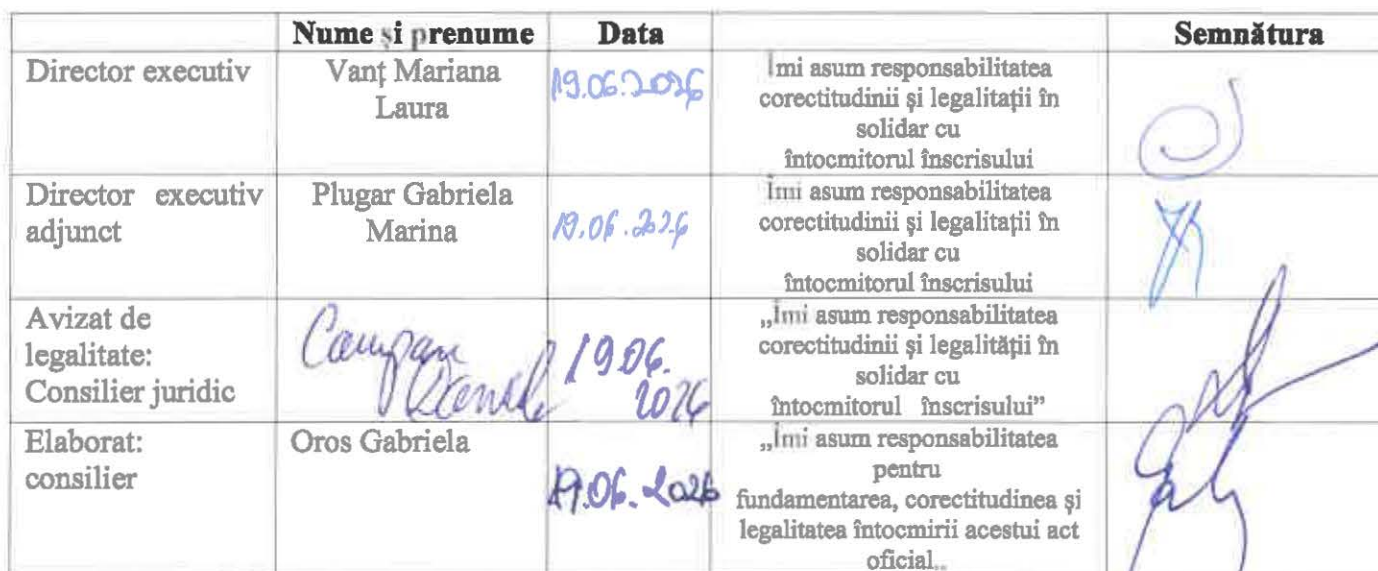 Nume și prenume Data Semnătura
Director executiv
Vanț Mariana
Laura
19.06.2026
Îmi asum responsabilitatea
corectitudinii și legalitații în
solidar cu
întocmitorul înscrisului
Director executiv
adjunct
Plugar Gabriela
Marina
19.06.2026
Îmi asum responsabilitatea
corectitudinii și legalitații în
solidar cu
întocmitorul înscrisului
Avizat de
legalitate:
Consilier juridic
19.06.
2026
„Îmi asum responsabilitatea
corectitudinii și legalității în
solidar cu
întocmitorul înscrisului”
Elaborat:
consilier
Oros Gabriela
19.06.2026
„Îmi asum responsabilitatea
pentru
fundamentarea, corectitudinea și
legalitatea întocmirii acestui act
oficial„